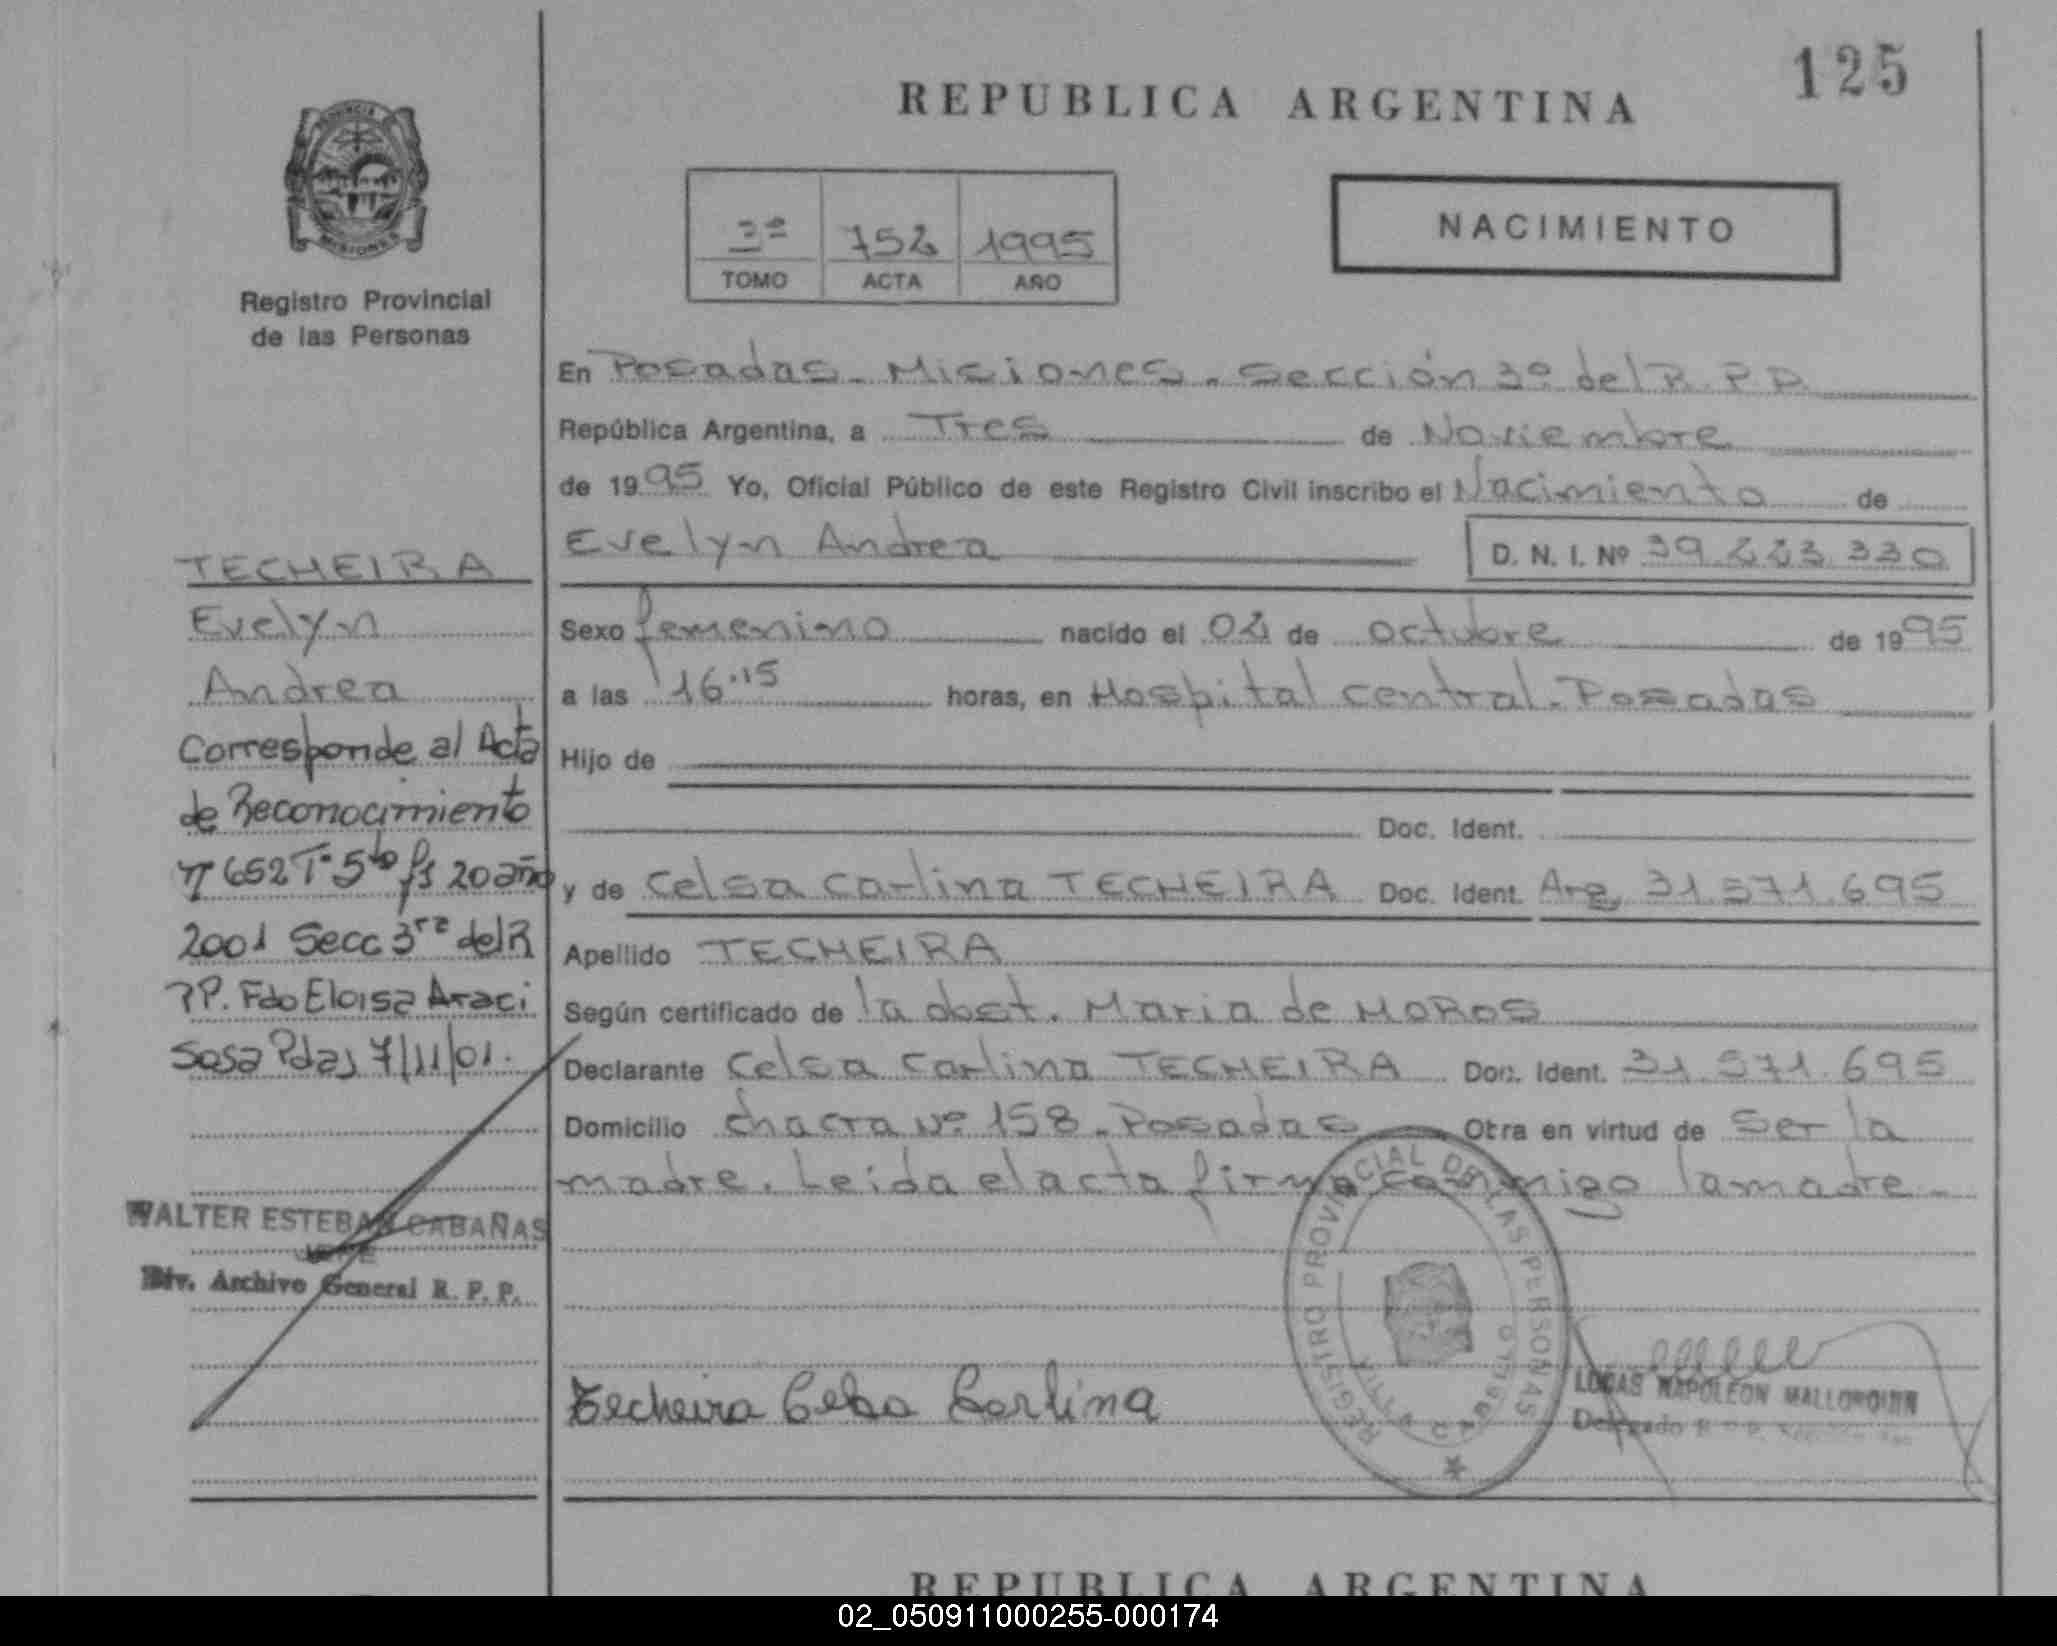 125
REPUBLICA ARGENTINA
PROVINCIA
MISIONES
Registro Provincial
de las Personas
3º 752 1995
TOMO ACTA AÑO
NACIMIENTO
En Posadas - Misiones. Sección 3º del R.P.P.
República Argentina, a Tres de Noviembre
de 1995 Yo, Oficial Público de este Registro Civil inscribo el Nacimiento de
Evelyn Andrea D. N. I. Nº 39.223.330
Sexo femenino nacido el 02 de octubre de 1995
a las 16.15 horas, en Hospital central. Posadas
Hijo de
Doc. Ident.
y de Celsa Carlina TECHEIRA Doc. Ident. Arg. 31.571.695
Apellido TECHEIRA
Según certificado de la obst. Maria de MOROS
Declarante Celsa Carlina TECHEIRA Doc. Ident. 31.571.695
Domicilio chacra Nº 158 - Posadas Otra en virtud de Ser la
madre. Leida el acta firma conmigo la madre -
TECHEIRA
Evelyn
Andrea
Corresponde al Acta
de Reconocimiento
nº 652 Tº 5to fs 20 año
2001 Secc 3ra del R
PP. Fdo Eloisa Araci
Sosa Pdas 7/11/01.
WALTER ESTEBAN CABAÑAS
JEFE
Div. Archivo General R. P. P.
Techeira Celsa Carlina
REGISTRO PROVINCIAL DE LAS PERSONAS
VILLA CABELLO
LUCAS NAPOLEON MALLORQUIN
Delegado R. P. P.
REPUBLICA ARGENTINA
02_050911000255-000174